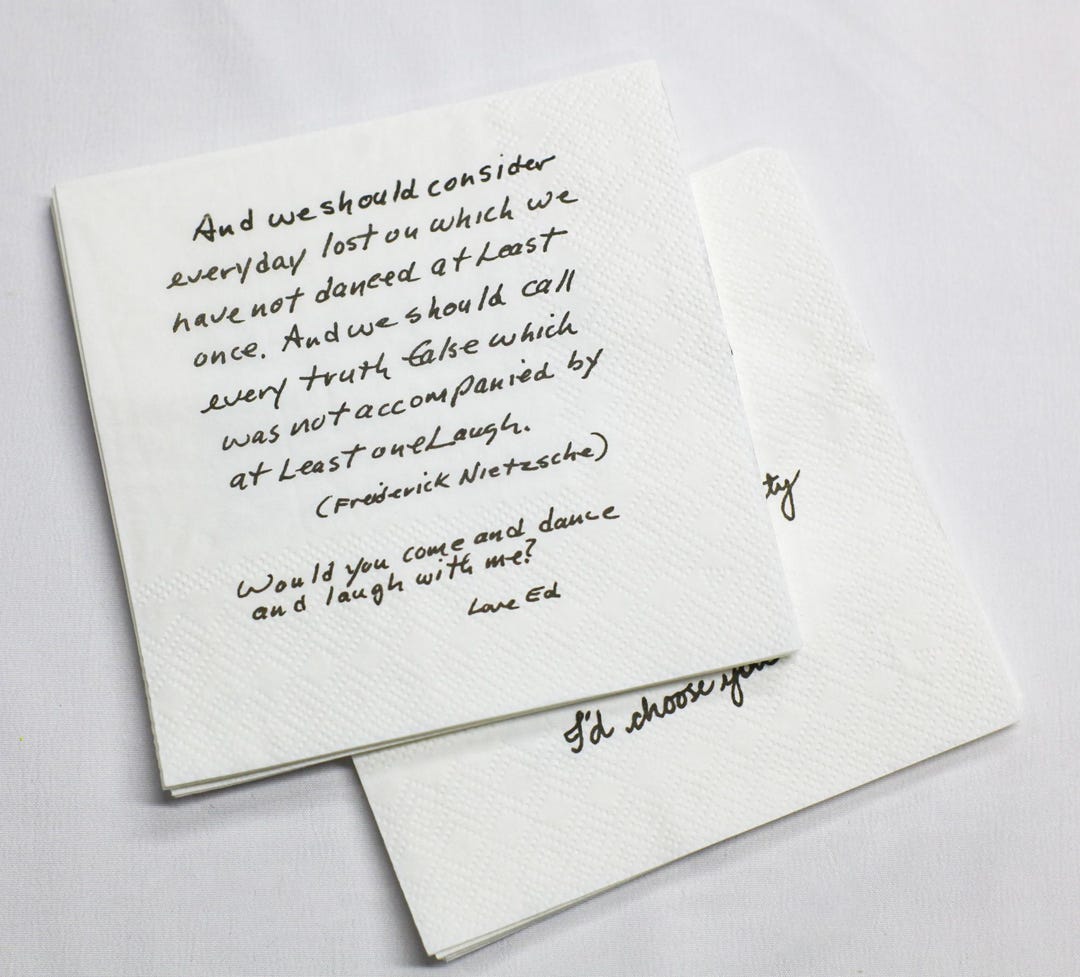 And we should consider
everyday lost on which we
have not danced at Least
once. And we should call
every truth false which
was not accompanied by
at Least one Laugh.
(Frederick Nietzsche)
Would you come and dance
and laugh with me?
Love Ed
ty
I'd choose you